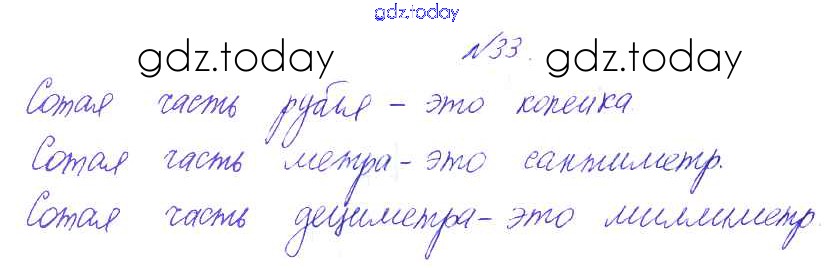 gdz.today
gdz.today №33. gdz.today
Сотая часть рубля – это копейка.
Сотая часть метра – это сантиметр.
Сотая часть дециметра – это миллиметр.